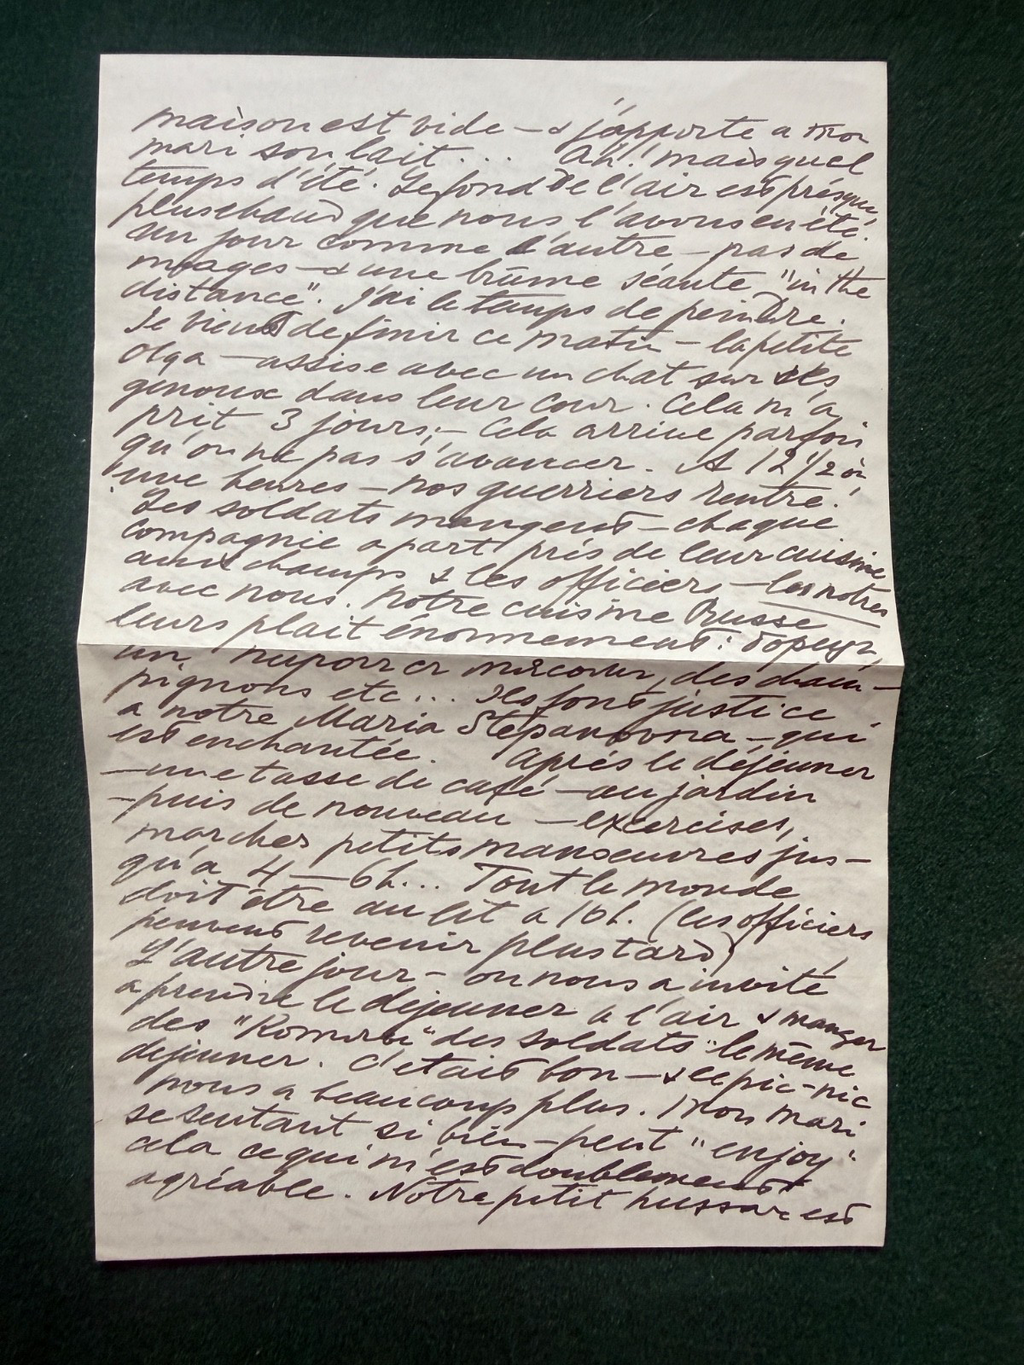 maison est vide — & j'apporte a mon
mari son lait... Ah! mais quel
temps d'été. Le fond de l'air est presque
plus chaud que nous l'avons en été.
un jour comme l'autre — pas de
nuages — & une brûme séante "in the
distance". J'ai le temps de peindre.
Je viens de finir ce matin — la petite
Olga — assise avec un chat sur ses
genoux dans leur cour. Cela m'a
prit 3 jours; — Cela arrive parfois
qu'on ne pas s'avancer. A 12 1/2 ou
une heures — nos guerriers rentre.
Les soldats mangent — chaque
compagnie apart près de leur cuisine
aux champs & les officiers — les notres
avec nous. Notre cuisine Russe
leurs plait énormement:
un, des cham-
pignons etc... Ils font justice
a notre Maria Stepanovna — qui
est enchantée. Après le déjeuner
— une tasse de café — au jardin
— puis de nouveau — excercises,
marches petits manoeuvres jus-
qu'a 4 — 6h... Tout le monde
doit être au lit a 10h. (les officiers
peuvent revenir plus tard)
L'autre jour — on nous a invité
a prendre le déjeuner a l'air & manger
des des soldats le même
dejeuner. C'etait bon — & le pic-nic
nous a beaucoup plus. Mon mari
se sentant si bien — peut "enjoy"
cela ce qui m'est doublement
agréable. Notre petit hussar est